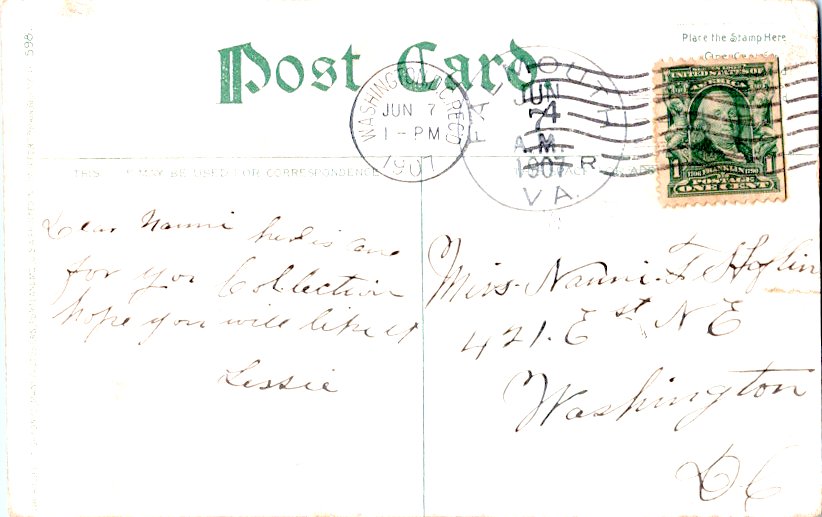 598.
Post Card
Place the Stamp Here
WASHINGTON, D.C. REC'D
JUN 7
1-PM
1907
FALMOUTH
JUN
7
A.M.
1907
VA.
UNITED STATES OF AMERICA
1706 FRANKLIN 1790
POSTAGE
ONE CENT
THIS MAY BE USED FOR CORRESPONDENCE
Dear Nanni her is one
for you Collection
hope you will like it
Lessie
Miss. Nanni. F
421. E st N E
Washington
D C